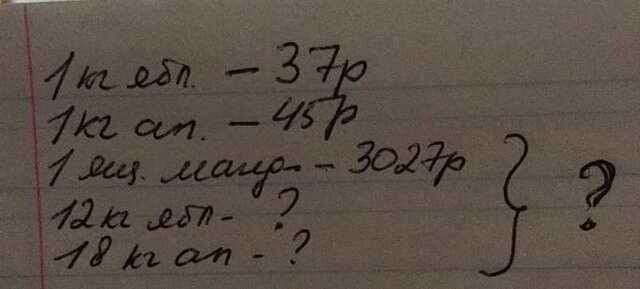 1 кг ябл. – 37р
1 кг ап. – 45р
1 ящ. манд. – 3027р
12 кг ябл – ?
18 кг ап – ?
?